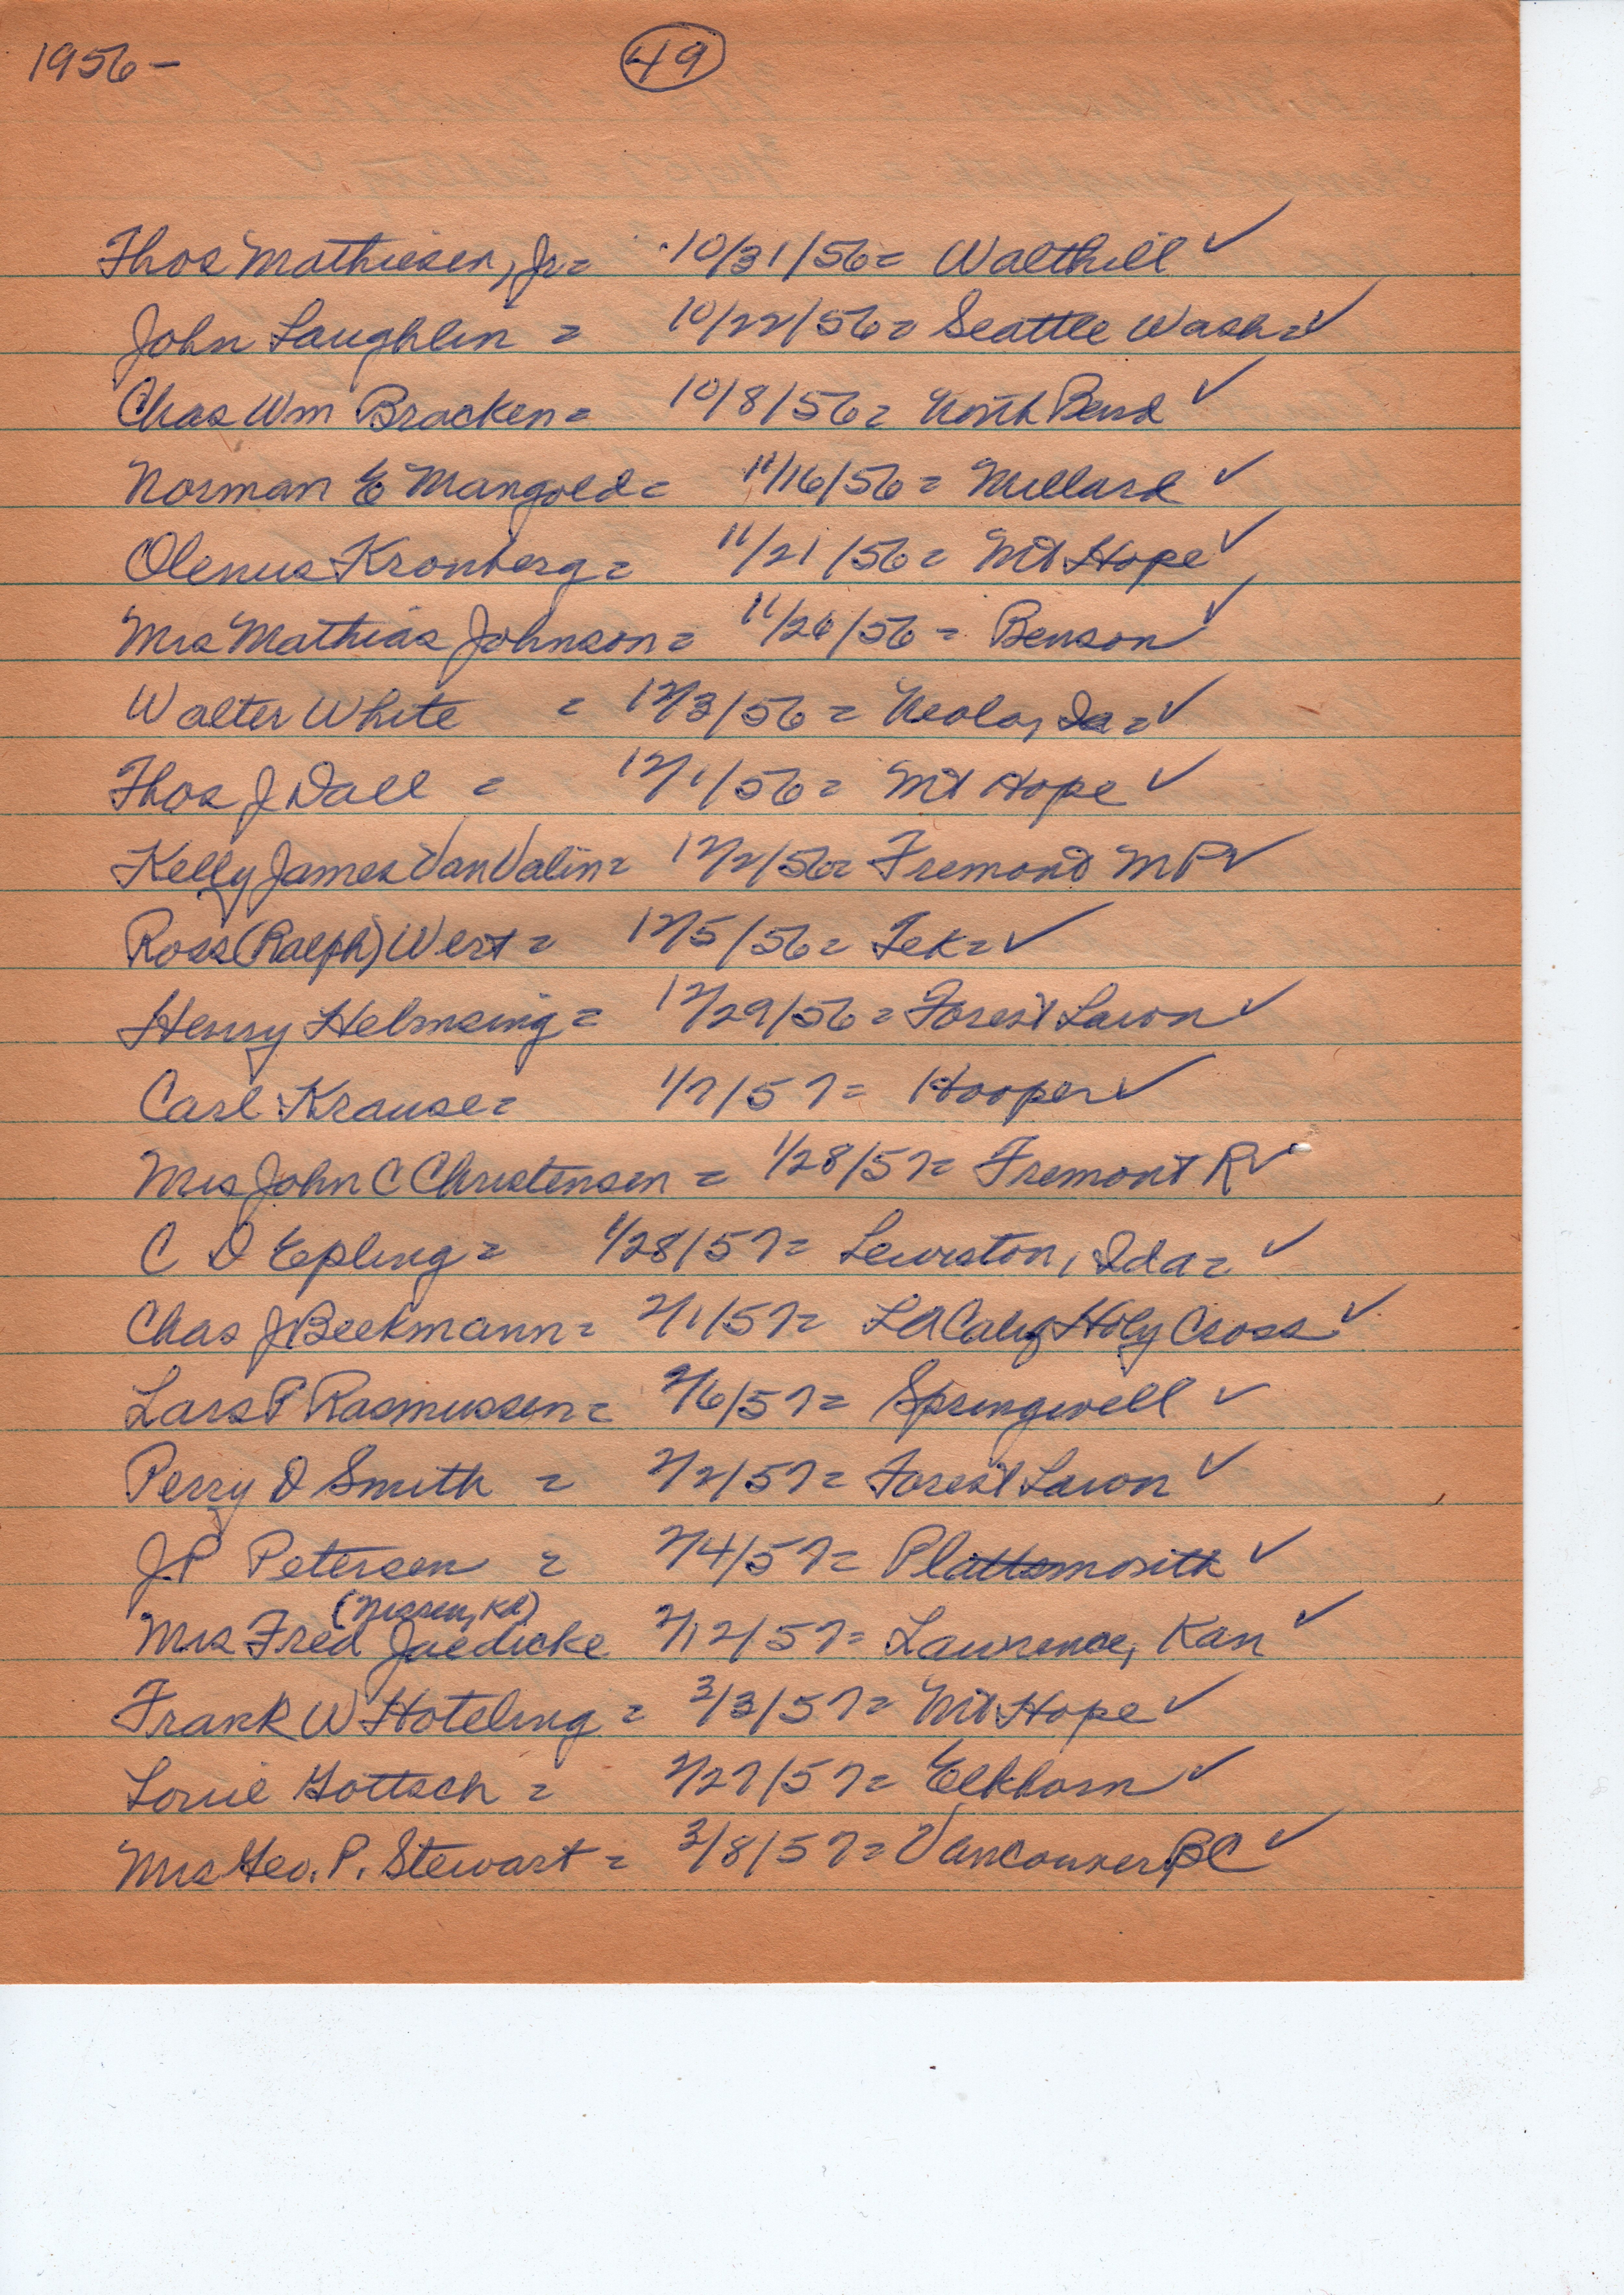 1956 — 49
Thos Mathiesen, Jr = 10/31/56 = Walthill ✓
John Laughlin = 10/22/56 = Seattle Wash = ✓
Chas Wm Bracken = 10/8/56 = North Bend ✓
Norman E Mangold = 11/16/56 = Millard ✓
Olenus Kronberg = 11/21/56 = Mt Hope ✓
Mrs Mathias Johnson = 11/26/56 = Benson ✓
Walter White = 12/3/56 = Neola, Ia = ✓
Thos J Dall = 12/1/56 = Mt Hope ✓
Kelly James VanValin = 12/2/56 = Fremont M P ✓
Ross (Ralph) Wert = 12/5/56 = Tek = ✓
Henry Helmsing = 12/29/56 = Forest Lawn ✓
Carl Krause = 1/7/57 = Hooper ✓
Mrs John C Christensen = 1/28/57 = Fremont R ✓
C D Epling = 1/28/57 = Lewiston, Ida = ✓
Chas J Beekmann = 2/1/57 = LA Calif Holy Cross ✓
Lars P Rasmussen = 2/6/57 = Springwell ✓
Perry D Smith = 2/2/57 = Forest Lawn ✓
J P Petersen = 2/4/57 = Plattsmouth ✓
(Nissen, Kd)
Mrs Fred Jaedicke 2/12/57 = Lawrence, Kan ✓
Frank W Hoteling = 3/3/57 = Mt Hope ✓
Louie Gottsch = 2/27/57 = Elkhorn ✓
Mrs Geo. P. Stewart = 3/8/57 = Vancouver, BC ✓